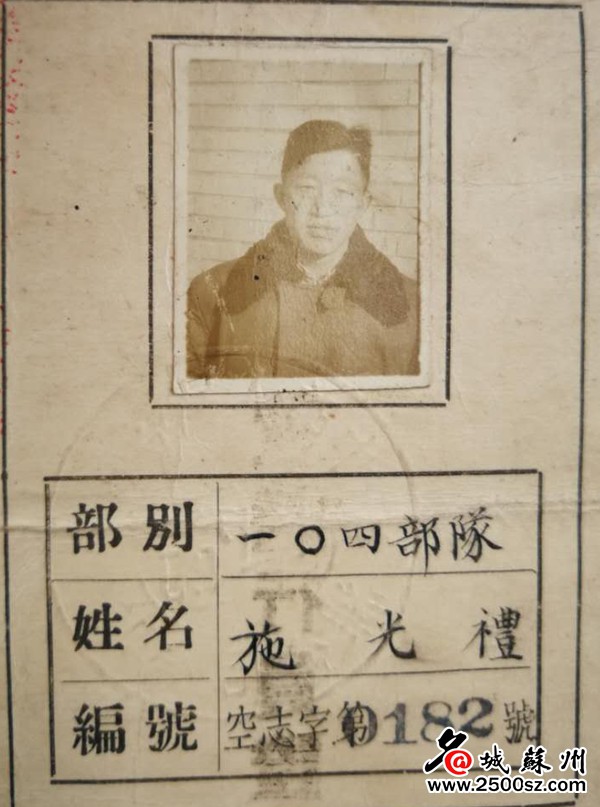 部别 一〇四部隊
姓名 施光禮
編號 空志字第0182號
名@城蘇州
www.2500sz.com